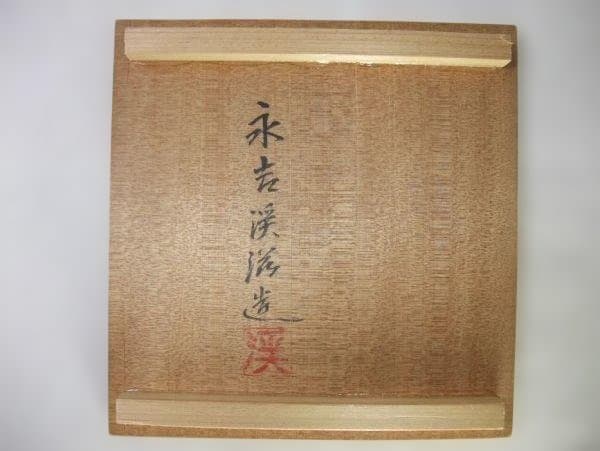 永吉渓滋造
渓